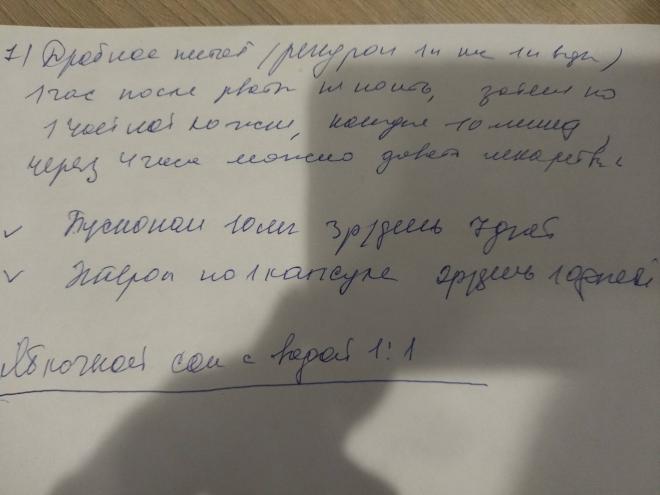 1) Дробное питьё (регидрон 1п на 1л воды)
1 час после рвоты не поить, затем по
1 чайной ложке, каждые 10 минут,
через 4 часа можно давать лекарства
✓ Бускопан 10мг 3р/день 7дней
✓ Энтерол по 1 капсуле 2р/день 10дней
Яблочный сок с водой 1:1